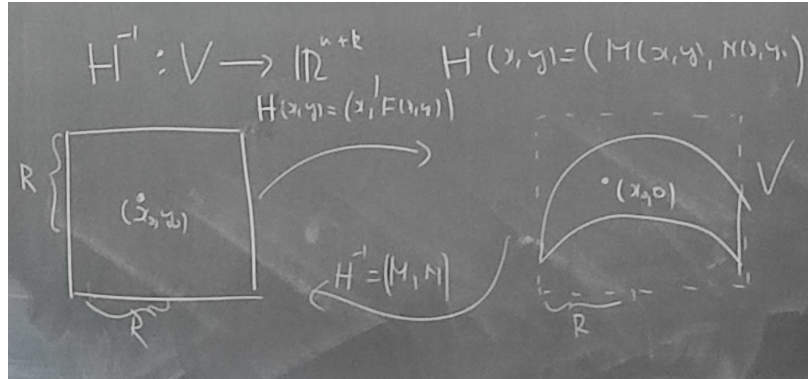 H⁻¹ : V → ℝⁿ⁺ᵏ H⁻¹(x,y) = (M(x,y), N(x,y))
H(x,y) = (x, F(x,y))
R
(x₀,y₀)
(x₀,0)
V
H⁻¹ = (M, N)
R
R